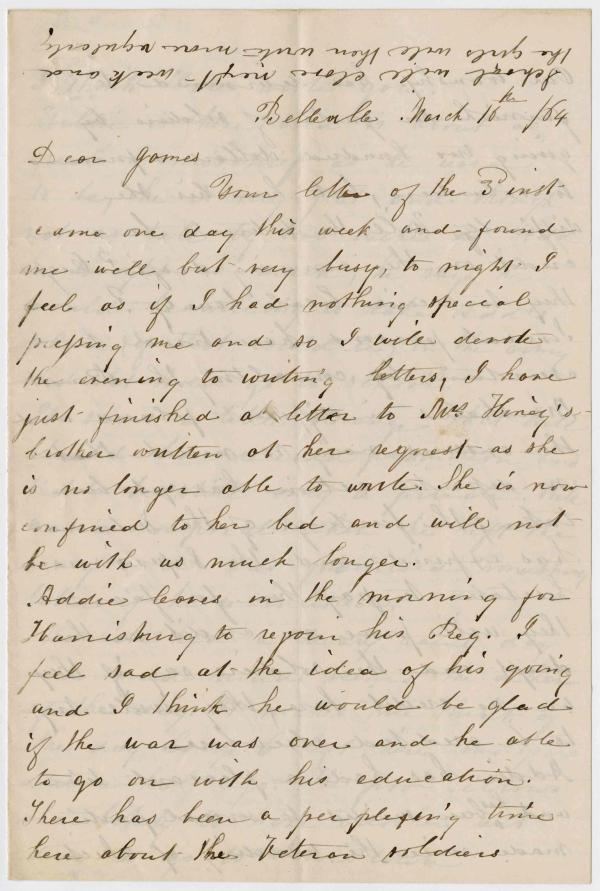 School will close next week and
the girls will then write more regularly
Belleville March 10th /64
Dear James
Your letter of the 3d inst
came one day this week and found
me well but very busy, to night I
feel as if I had nothing special
pressing me and so I will devote
the evening to writing letters, I have
just finished a letter to Mrs
brother written at her request as she
is no longer able to write. She is now
confined to her bed and will not
be with us much longer.
Addie leaves in the morning for
Harrisburg to rejoin his Reg. I
feel sad at the idea of his going
and I think he would be glad
if the war was over and he able
to go on with his education.
There has been a perplexing time
here about the Veteran soldiers